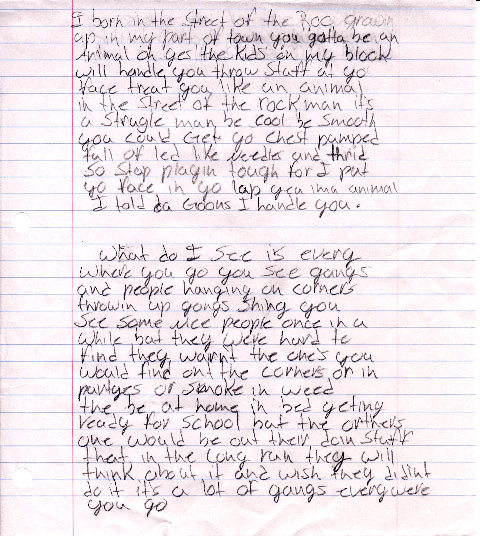 I born in the Street of the Roc grown
up in my part of town you gotta be an
Animal oh yes the kids on my block
will handle you throw Stuff at yo
face treat you like an animal
in the Street of the rock man it's
a Strugle man be cool be smooth
you could Get yo chest pumped
full of led like Needles and thrid
So Stop playin tough for I put
yo face in yo lap yea ima animal
I told da Goons I handle you.
What do I See is every
where you go you see gangs
and people hanging on corners
throwin up gangs Shing you
See some nice people once in a
while but they were hard to
find they warnt the one's you
would find ont the corners or in
partyes or smoke in weed
the be at home in bed geting
ready for School but the orthers
one would be out their doin Stuff
that in the long run they will
think about it and wish they didint
do it it's a lot of gangs everywere
you go